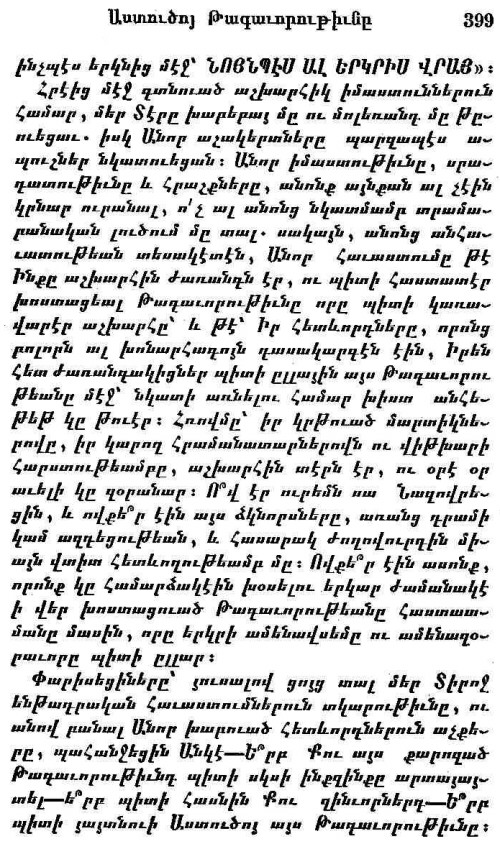 Աստուծոյ Թագաւորութիւնը 399
ինչպէս երկնից մէջ՝ ՆՈՅՆՊԷՍ ԱԼ ԵՐԿՐԻՍ ՎՐԱՅ»։
Հրէից մէջ գտնուած աշխարհիկ իմաստուններուն
համար, մեր Տէրը խարեբայ մը ու մոլեռանդ մը թը-
ուեցաւ. իսկ Անոր աշակերտները պարզապէս ա-
պուշներ նկատուեցան։ Անոր իմաստութիւնը, սրա-
դատութիւնը և հրաշքները, անոնք այնքան ալ չէին
կրնար ուրանալ, ո՛չ ալ անոնց նկատմամբ տրամա-
բանական լուծում մը տալ. սակայն, անոնց անհա-
ւատութեան տեսակէտէն, Անոր Հաւաստումը թէ
Ինքը աշխարհին ժառանգն էր, ու պիտի հաստատէր
խոստացեալ Թագաւորութիւնը որը պիտի կառա-
վարէր աշխարհը՝ և թէ՝ Իր հետևորդները, որոնց
բոլորն ալ խոնարհագոյն դասակարգէն էին, Իրեն
հետ ժառանգակիցներ պիտի ըլլային այս Թագաւորու
թեանը մէջ՝ նկատի առնելու համար խիստ անհե-
թեթ կը թուէր։ Հռովմը՝ իր կրթուած մարտիկնե-
րովը, իր կարող հրամանատարներովն ու վիթխարի
հարստութեամբը, աշխարհին տէրն էր, ու օրէ օր
աւելի կը զօրանար։ Ո՞վ էր ուրեմն սա Նազովրե-
ցին, և ովքե՞ր էին այս ձկնորսները, առանց դրամի
կամ ազդեցութեան, և հասարակ ժողովուրդին մի-
այն վտիտ հետևողութեամբ մը։ Ովքե՞ր էին ասոնք,
որոնք կը համարձակէին խօսելու երկար ժամանակէ
ի վեր խոստացուած Թագաւորութեանը հաստատ-
մանը մասին, որը երկրի ամենավսեմը ու ամենազօ-
րաւորը պիտի ըլլար։
Փարիսեցիները՝ յուսալով ցոյց տալ մեր Տիրոջ
ենթադրական հաւաստումներուն տկարութիւնը, ու
անով բանալ Անոր խաբուած հետևորդներուն աչքե-
րը, պահանջեցին Անկէ—Ե՞րբ Քու այս քարոզած
Թագաւորութիւնդ պիտի սկսի ինքզինքը արտայայ-
տել—ե՞րբ պիտի հասնին Քու զինւորներդ—Ե՞րբ
պիտի յայտնուի Աստուծոյ այս Թագաւորութիւնը։